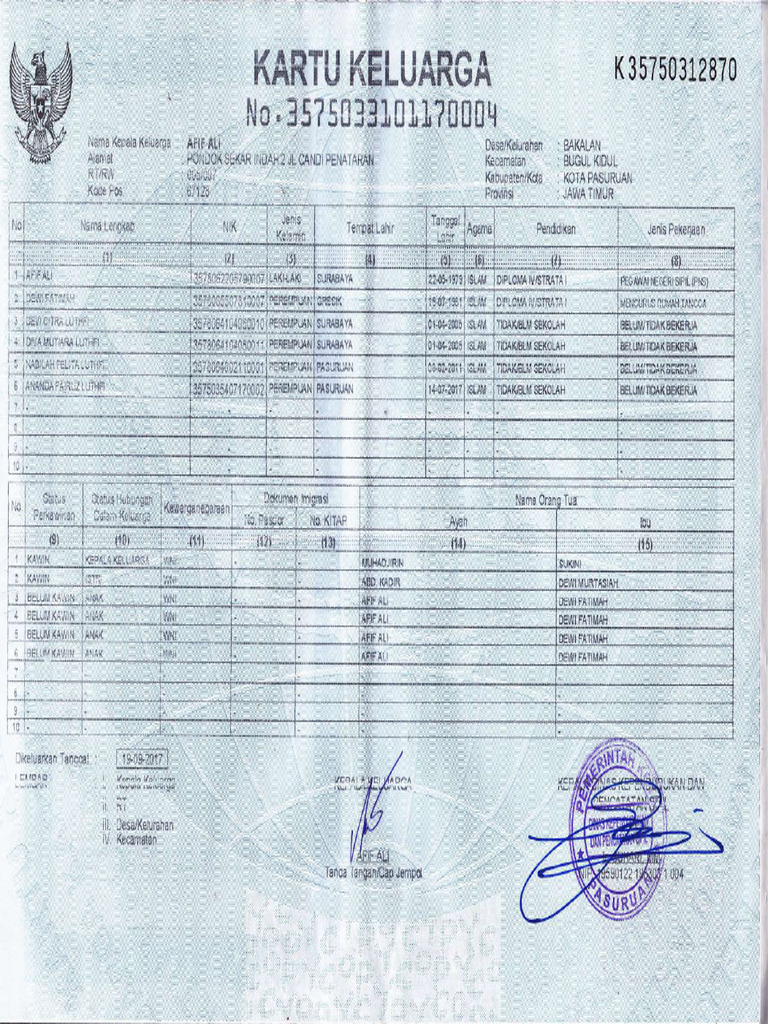 KARTU KELUARGA
K35750312870
No.3575033101170004
Nama Kepala Keluarga : AFIF ALI
Alamat : PONDOK SEKAR INDAH 2 JL CANDI PENATARAN
RT/RW
Kode Pos
Desa/Kelurahan : BAKALAN
Kecamatan : BUGUL KIDUL
Kabupaten/Kota : KOTA PASURUAN
Provinsi : JAWA TIMUR
No Nama Lengkap NIK Jenis Kelamin Tempat Lahir Tanggal Lahir Agama Pendidikan Jenis Pekerjaan
(1) (2) (3) (4) (5) (6) (7) (8)
1 AFIF ALI LAKI-LAKI SURABAYA 22-05-1979 ISLAM DIPLOMA IV/STRATA I PEGAWAI NEGERI SIPIL (PNS)
2 DEWI FATIMAH PEREMPUAN GRESIK ISLAM DIPLOMA IV/STRATA I MENGURUS RUMAH TANGGA
3 DEVI CITRA LUTHFI PEREMPUAN SURABAYA 01-04-2005 ISLAM TIDAK/BLM SEKOLAH BELUM/TIDAK BEKERJA
4 DIVA MUTIARA LUTHFI PEREMPUAN SURABAYA 01-04-2005 ISLAM TIDAK/BLM SEKOLAH BELUM/TIDAK BEKERJA
5 NABILAH PELITA LUTHFI PEREMPUAN PASURUAN ISLAM TIDAK/BLM SEKOLAH BELUM/TIDAK BEKERJA
6 ANANDA FAIRUZ LUTHFI 3575035407170002 PEREMPUAN PASURUAN 14-07-2017 ISLAM TIDAK/BLM SEKOLAH BELUM/TIDAK BEKERJA
7 - - - - - - - -
8 - - - - - - - -
9 - - - - - - - -
10 - - - - - - - -
No Status Perkawinan Status Hubungan Dalam Keluarga Kewarganegaraan Dokumen Imigrasi Nama Orang Tua
No. Paspor No. KITAP Ayah Ibu
(9) (10) (11) (12) (13) (14) (15)
1 KAWIN KEPALA KELUARGA WNI - - MUHADJIRIN SUKINI
2 KAWIN ISTRI WNI - - ABD. KADIR DEWI MURTASIAH
3 BELUM KAWIN ANAK WNI - - AFIF ALI DEWI FATIMAH
4 BELUM KAWIN ANAK WNI - - AFIF ALI DEWI FATIMAH
5 BELUM KAWIN ANAK WNI - - AFIF ALI DEWI FATIMAH
6 BELUM KAWIN ANAK WNI - - AFIF ALI DEWI FATIMAH
7 - - - - - - -
8 - - - - - - -
9 - - - - - - -
10 - - - - - - -
Dikeluarkan Tanggal : 19-09-2017
LEMBAR : I. Kepala Keluarga
II. RT
III. Desa/Kelurahan
IV. Kecamatan
KEPALA KELUARGA
AFIF ALI
Tanda Tangan/Cap Jempol
KEPALA DINAS KEPENDUDUKAN DAN
PENCATATAN SIPIL
PEMERINTAH
PASURUAN